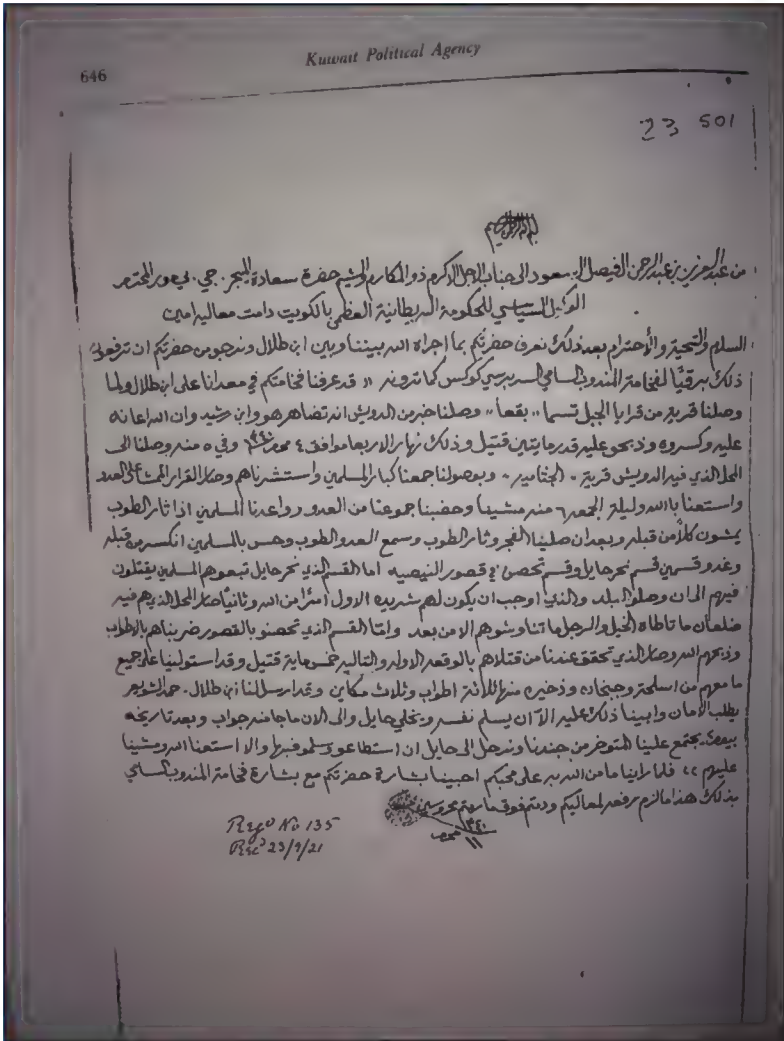 Kuwait Political Agency
646
23 501
بسم الله الرحمن الرحيم
من عبد العزيز بن عبد الرحمن الفيصل السعود الى جناب الاجل الاكرم ذو المكارم والشيم حضرة سعادة الميجر . جي . بي مور المحترم
الوكيل السياسي للحكومة البريطانية العظمى بالكويت دامت معاليه امين
السلام والتحية والأحترام بعد ذلك نعرف حضرتكم بما اجراه الله بيننا وبين ابن طلال ونرجو من حضرتكم ان ترفعوا
ذلك برقيًا لفخامة المندوب السامي السر برسي كوكس كما ترونه ،، قد عرفنا فخامتكم في معدانا على ابن طلال ولما
وصلنا قرية من قرايا الجبل تسما ،، بقعا ،، وصلنا خبر من الدويش انه تضاهر هو وابن رشيد وان الله اعانه
عليه وكسروه وذبحو عليه قدر مايتين قتيل وذلك نهار الاربعا موافق ٤ محرم ١٣٤٠ وفي ٥ منه وصلنا الى
المحل الذي فيه الدويش قرية ،، الجثاميه ،، وبوصولنا جمعنا كبار المسلمين واستشرناهم وصار القرار الممشا على العدو
واستعنا بالله وليلة الجمعه ٦ منه مشينا وحضبنا جموعنا من العدو وواعدنا المسلمين اذا ثار الطوب
يمشون كلاً من قبله وبعد ان صلينا الفجر وثار الطوب وسمع العدو الطوب وحس بالمسلمين انكسر من قبله
وغدو قسمين قسم نحر حايل وقسم تحصن في قصور النيصيه اما القسم الذي نحر حايل تبعوهم المسلمين يقتلون
فيهم الى ان وصلو البلد والذي اوجب ان يكون لهم شريده الاول امرًا من الله وثانيًا صار المحل الذي هم فيه
ضلعان ما تاطاه الخيل والرجل ما تناوشوهم الا من بعد وامّا القسم الذي تحصنو بالقصور ضربناهم بالاطواب
وذبحهم الله وصار الذي تحقق عندنا من قتلاهم بالوقعه الاوله والتاليه خمسماية قتيل وقد استولينا على جميع
ما معهم من اسلحة وجبخانه وذخيره منها ثلاثة اطواب وثلاث مكاين وقد ارسل لنا ابن طلال . حمد الشويعر
يطلب الأمان وابينا ذلك عليه الا ان يسلم نفسه ويخلي حايل والى الان ما جا منه جواب وبعد تاريخه
يجتمع علينا المتوخر من جندنا ونرحل الى حايل ان استطاعو وسلمو فبها والا استعنا الله ومشينا
عليهم ،، فلما راينا ما من الله به على محبكم احببنا بشارة حضرتكم مع بشارة فخامة المندوب السامي
بذلك هذا ما لزم رفعه لمعاليكم ودمتم فوق ما رمتم محروسين
١١ محرم ١٣٤٠
Regd No 135
Recd 23/9/21